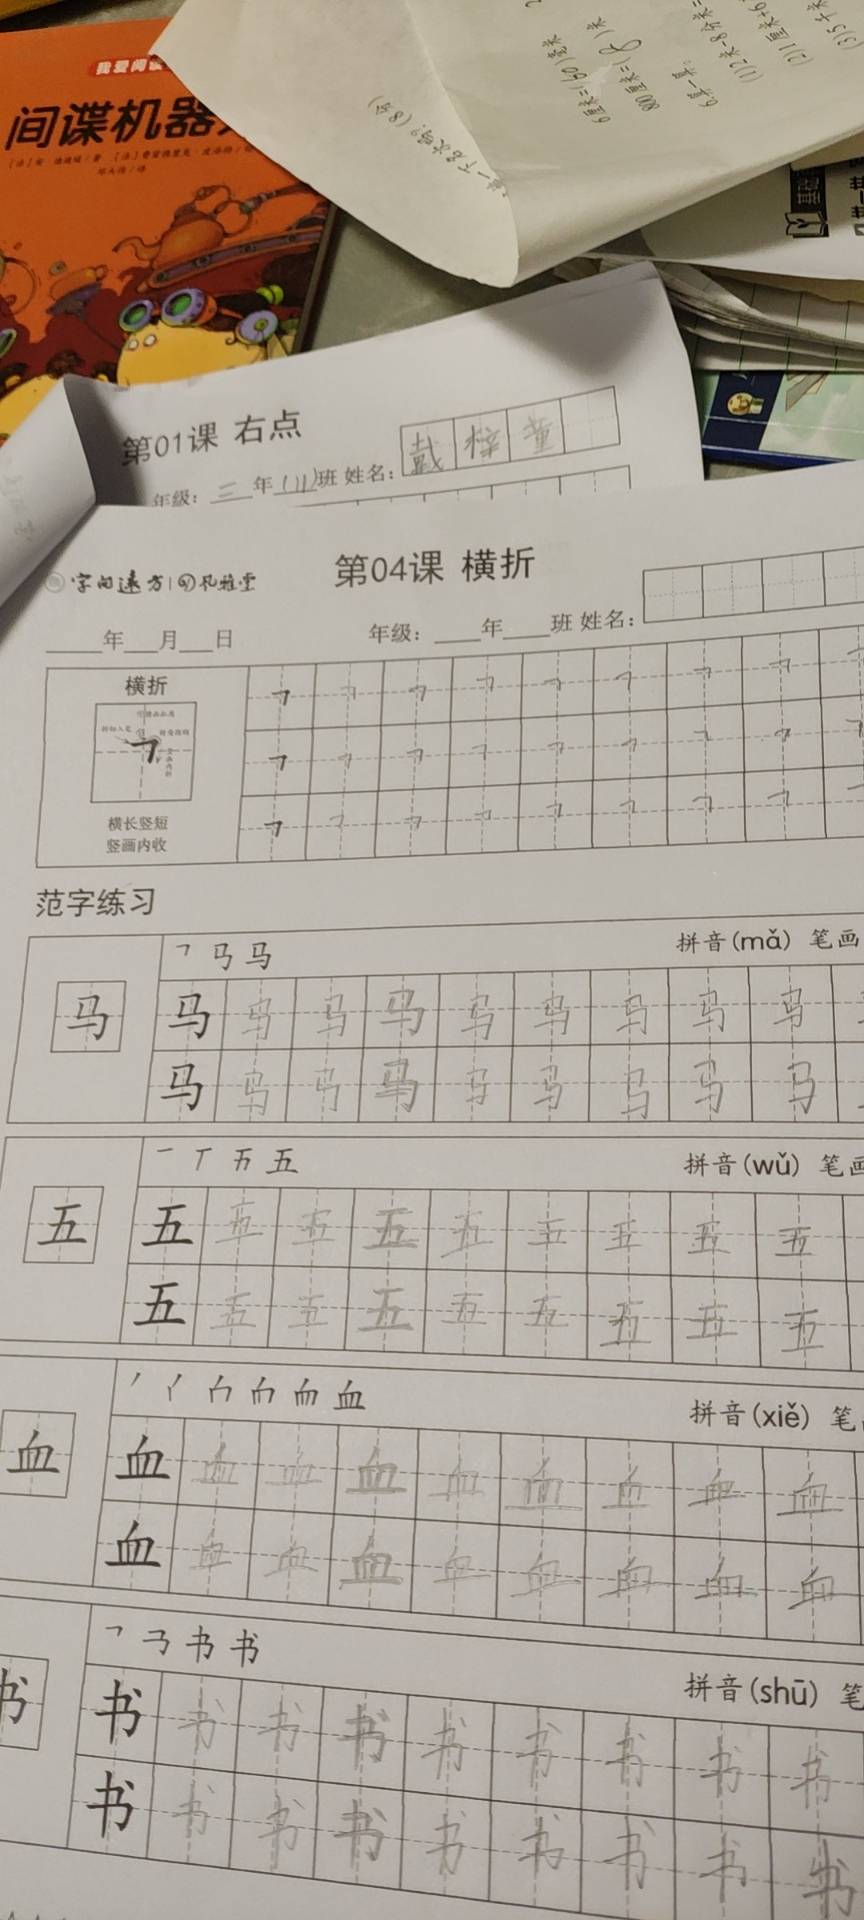 我爱阅读
间谍机器
6厘米=(60)毫米
800厘米=(8)米
(8分)
第01课 右点
年级: 三 年(11)班 姓名: 戴梓童
字向远方
第04课 横折
年 月 日 年级: 年 班 姓名:
横折
横长竖短
竖画内收
范字练习
㇕ 马 马 拼音(mǎ) 笔画
马 马 马 马 马 马 马 马 马 马
马 马 马 马 马 马 马 马 马
一 丅 五 五 拼音(wǔ) 笔画
五 五 五 五 五 五 五 五 五 五
五 五 五 五 五 五 五 五 五
血 拼音(xiě) 笔
血 血 血 血 血 血 血 血 血 血
血 血 血 血 血 血 血 血 血
书 书 拼音(shū) 笔
书 书 书 书 书 书 书 书 书 书
书 书 书 书 书 书 书 书 书